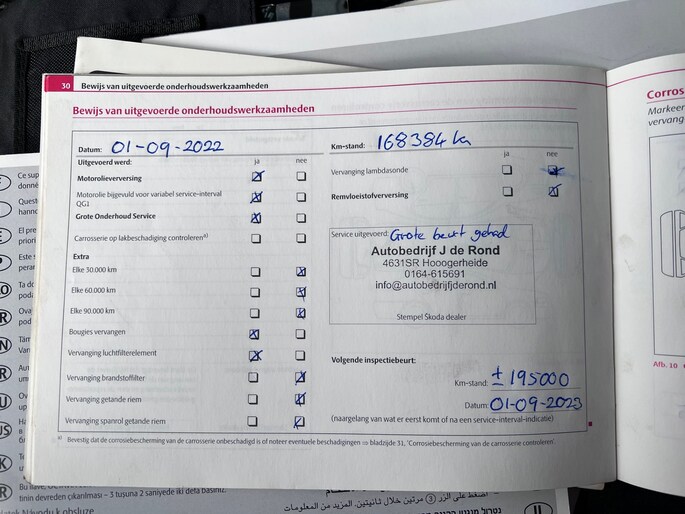 30 Bewijs van uitgevoerde onderhoudswerkzaamheden
Bewijs van uitgevoerde onderhoudswerkzaamheden
Datum: 01-09-2022
Uitgevoerd werd: ja nee
Motorolieverversing
Motorolie bijgevuld voor variabel service-interval
QG1
Grote Onderhoud Service
Carrosserie op lakbeschadiging controleren a)
Extra
Elke 30.000 km
Elke 60.000 km
Elke 90.000 km
Bougies vervangen
Vervanging luchtfilterelement
Vervanging brandstoffilter
Vervanging getande riem
Vervanging spanrol getande riem
Km-stand: 168384 km
ja nee
Vervanging lambdasonde
Remvloeistofverversing
Service uitgevoerd: Grote beurt gehad
Autobedrijf J de Rond
4631SR Hooogerheide
0164-615691
info@autobedrijfjderond.nl
Stempel Škoda dealer
Volgende inspectiebeurt:
Km-stand: ± 195000
Datum: 01-09-2023
(naargelang van wat er eerst komt of na een service-interval-indicatie)
a) Bevestig dat de corrosiebescherming van de carrosserie onbeschadigd is of noteer eventuele beschadigingen ⇒ bladzijde 31, 'Corrosiebescherming van de carrosserie controleren'.
Markeer
vervang
Afb. 10
Ce sup
donné
Quest
hanno
El pre
priori
Este
peran
Ta do
poda
tinin devreden çıkarılması – 3 tuşuna 2 saniyede iki defa basınız.